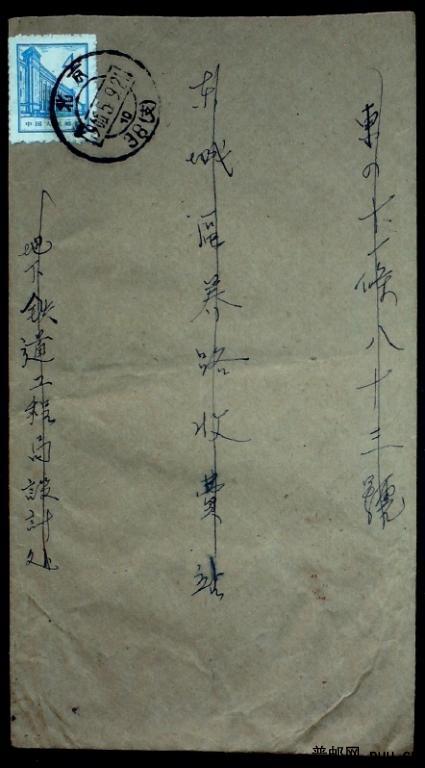 東四十一條八十三號
东城區养路收費站
地下鉄道工程局設計处
北京
38(支)
中国人民邮政
普邮网